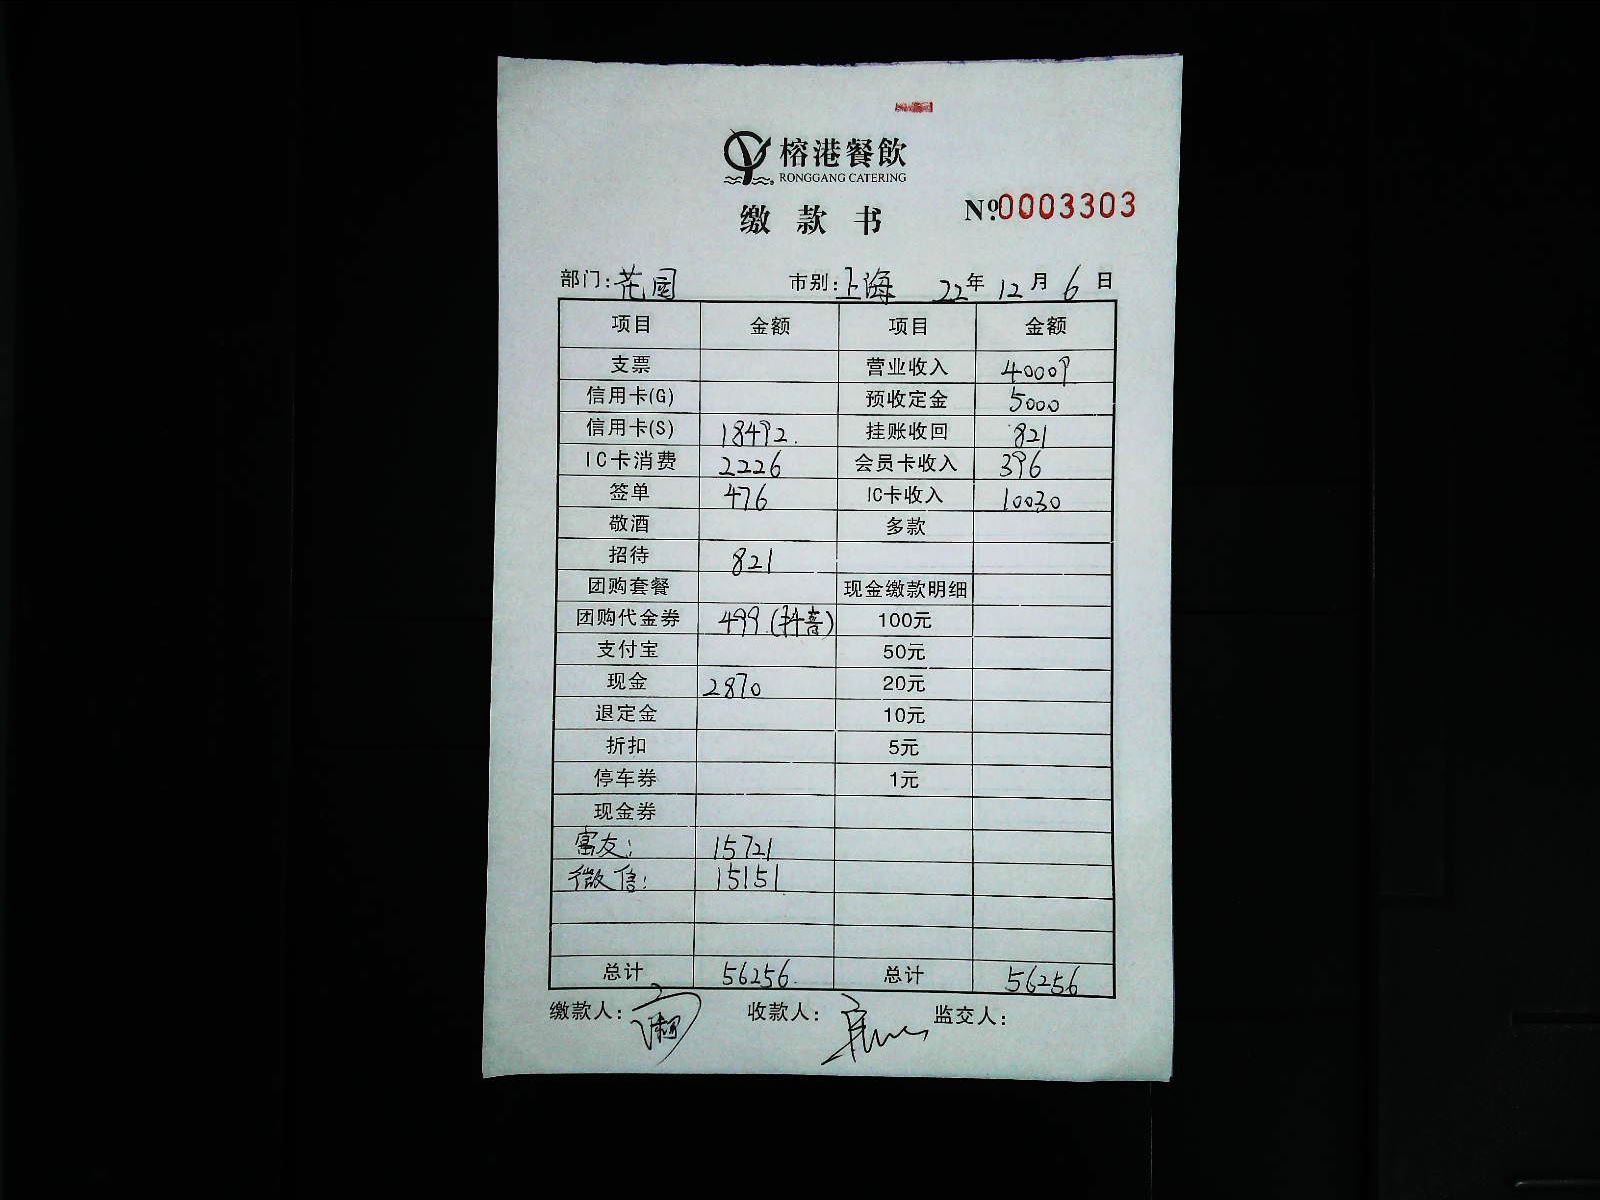 榕港餐飲
RONGGANG CATERING
缴款书 №0003303
部门:花园 市别:上海 22年12月6日
项目 金额 项目 金额
支票 营业收入 40009
信用卡(G) 预收定金 5000
信用卡(S) 18492. 挂账收回 821
IC卡消费 2226 会员卡收入 396
签单 476 IC卡收入 10030
敬酒 多款
招待 821
团购套餐 现金缴款明细
团购代金券 499.(抖音) 100元
支付宝 50元
现金 2870 20元
退定金 10元
折扣 5元
停车券 1元
现金券
富友: 15721
微信: 15151
总计 56256. 总计 56256
缴款人: 收款人: 监交人: